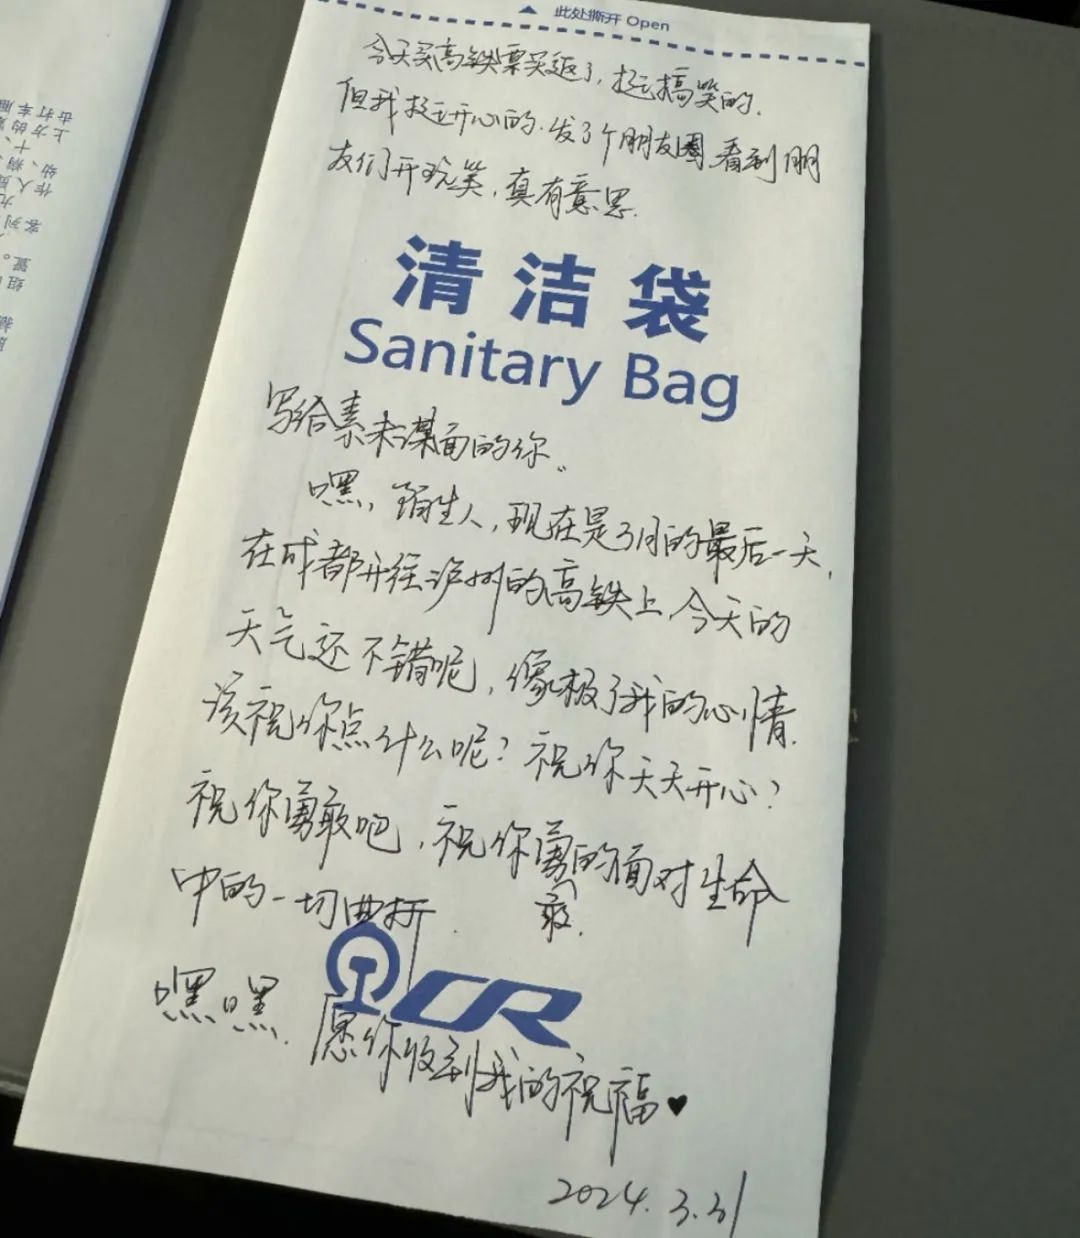 此处撕开 Open
今天买高铁票买返了，挺搞笑的.
但我挺开心的.发了个朋友圈,看到朋
友们开玩笑，真有意思.
清洁袋
Sanitary Bag
写给素未谋面的你。
嘿，陌生人，现在是3月的最后一天，
在成都开往泸州的高铁上,今天的
天气还不错呢，像极了我的心情.
该祝你点什么呢？祝你天天开心？
祝你勇敢吧，祝你勇敢的面对生命
中的一切曲折.
CR
嘿嘿.愿你收到我的祝福♥
2024.3.31